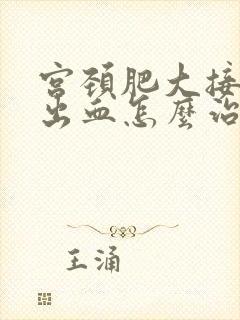 宫颈肥大接
出血怎麼治
王涌